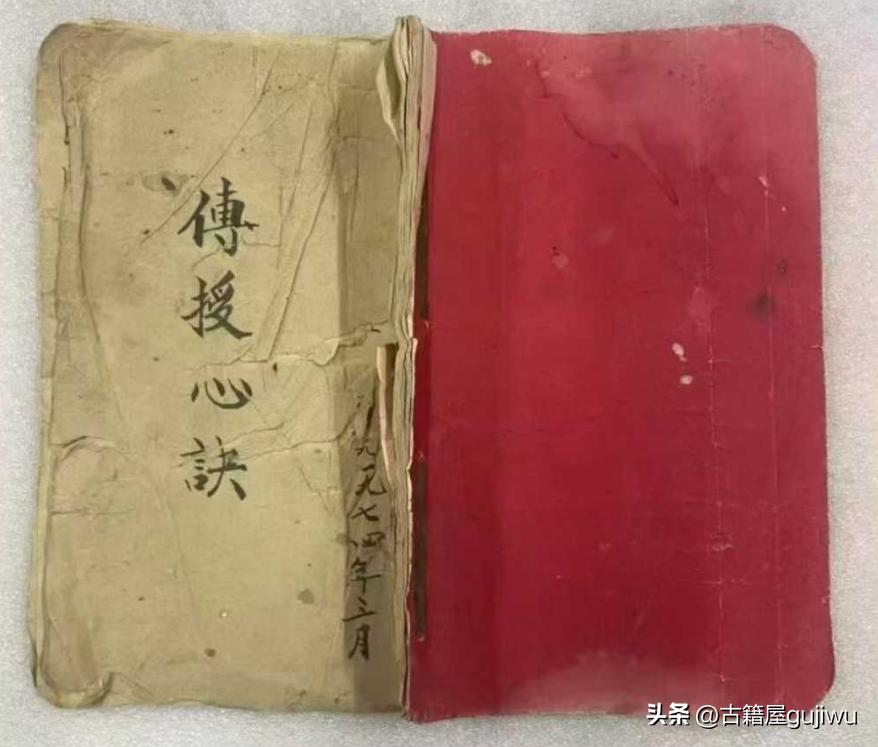 傳授心訣
九七四年三月
头条 @古籍屋gujiwu